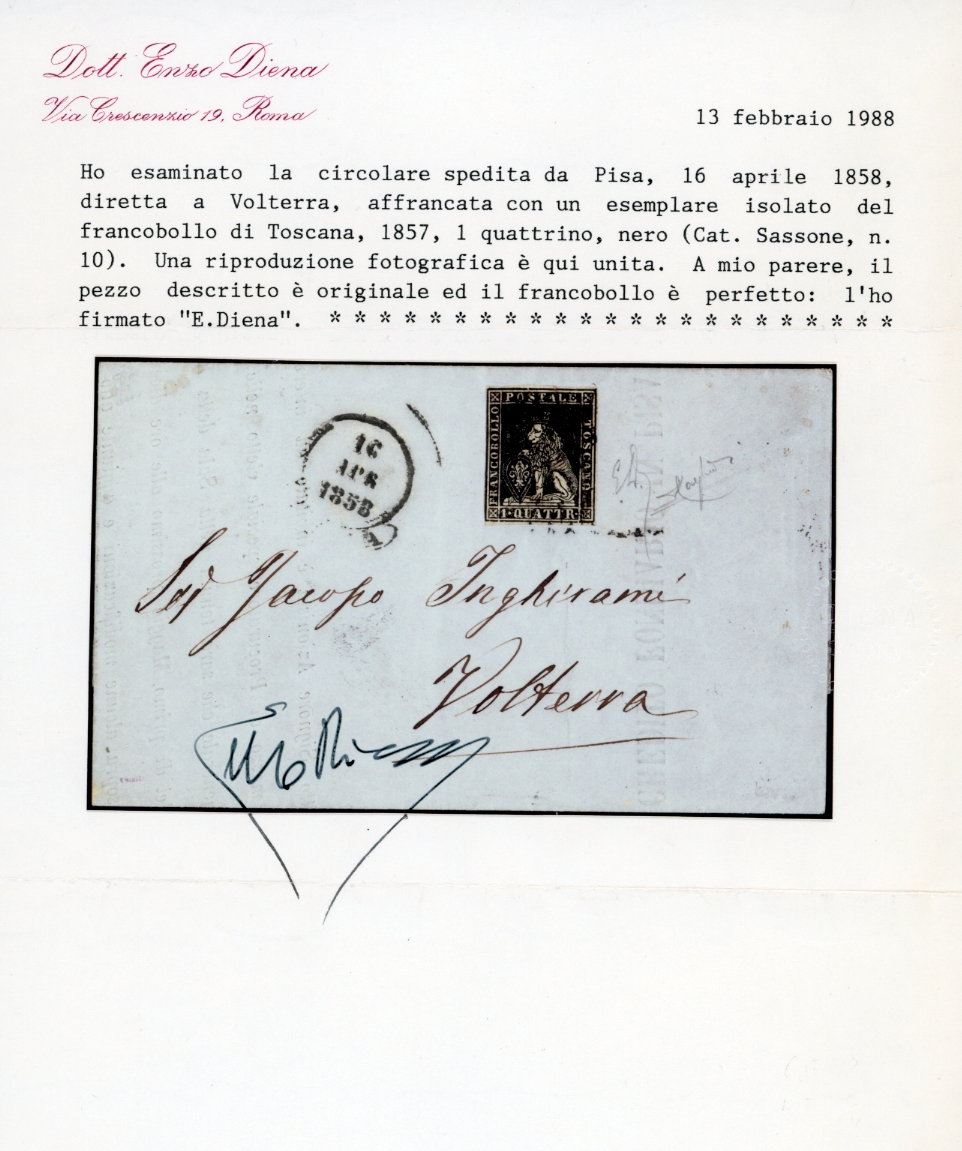 Dott. Enzo Diena
Via Crescenzio 19, Roma
13 febbraio 1988
Ho esaminato la circolare spedita da Pisa, 16 aprile 1858,
diretta a Volterra, affrancata con un esemplare isolato del
francobollo di Toscana, 1857, 1 quattrino, nero (Cat. Sassone, n.
10). Una riproduzione fotografica è qui unita. A mio parere, il
pezzo descritto è originale ed il francobollo è perfetto: l'ho
firmato "E.Diena". * * * * * * * * * * * * * * * * * * * * * * *
FRANCOBOLLO
POSTALE
TOSCANO
1·QUATTR·
16
APR
1858
Jacopo Inghirami
Volterra